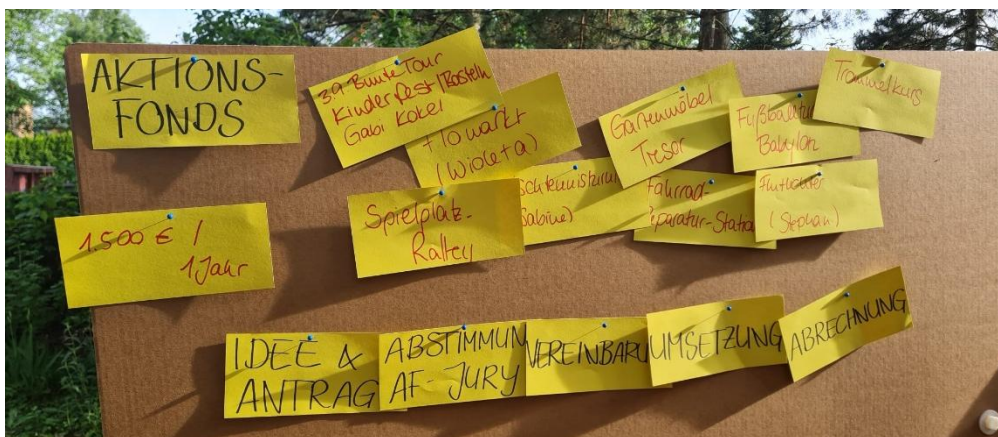 AKTIONS-
FONDS
3.9. Bunte Tour
Kinderfest/Basteln
Gabi Kokel
Flowarkt
(Wioleta)
Gartenmöbel
Tresor
Babylon
Trommelkurs
1.500 € /
1 Jahr
Spielplatz-
Ralley
schtennisturni
(Sabine)
Fahrrad-
eparatur-Statio
(Stephan)
IDEE &
ANTRAG
ABSTIMMUN
AF-JURY
VEREINBARU
UMSETZUNG
ABRECHNUNG